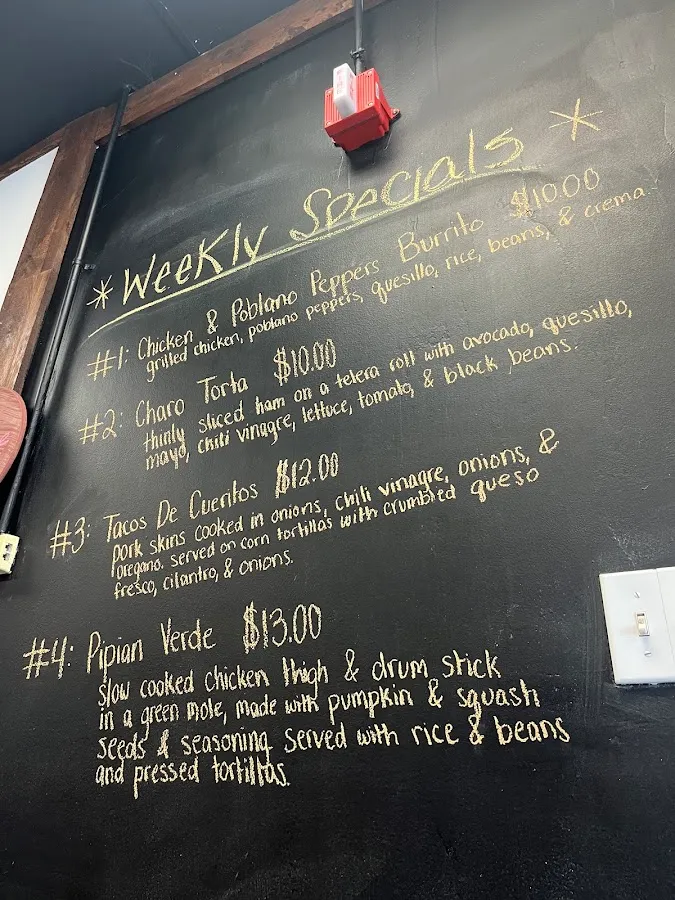 * Weekly Specials *
#1: Chicken & Poblano Peppers Burrito $10.00
grilled chicken, poblano peppers, quesillo, rice, beans, & crema
#2: Charo Torta $10.00
thinly sliced ham on a telera roll with avocado, quesillo,
mayo, chili vinagre, lettuce, tomato, & black beans.
#3: Tacos De Cueritos $12.00
pork skins cooked in onions, chili vinagre, onions, &
oregano. served on corn tortillas with crumbled queso
fresco, cilantro, & onions.
#4: Pipian Verde $13.00
slow cooked chicken thigh & drum stick
in a green mole, made with pumpkin & squash
seeds & seasoning served with rice & beans
and pressed tortillas.